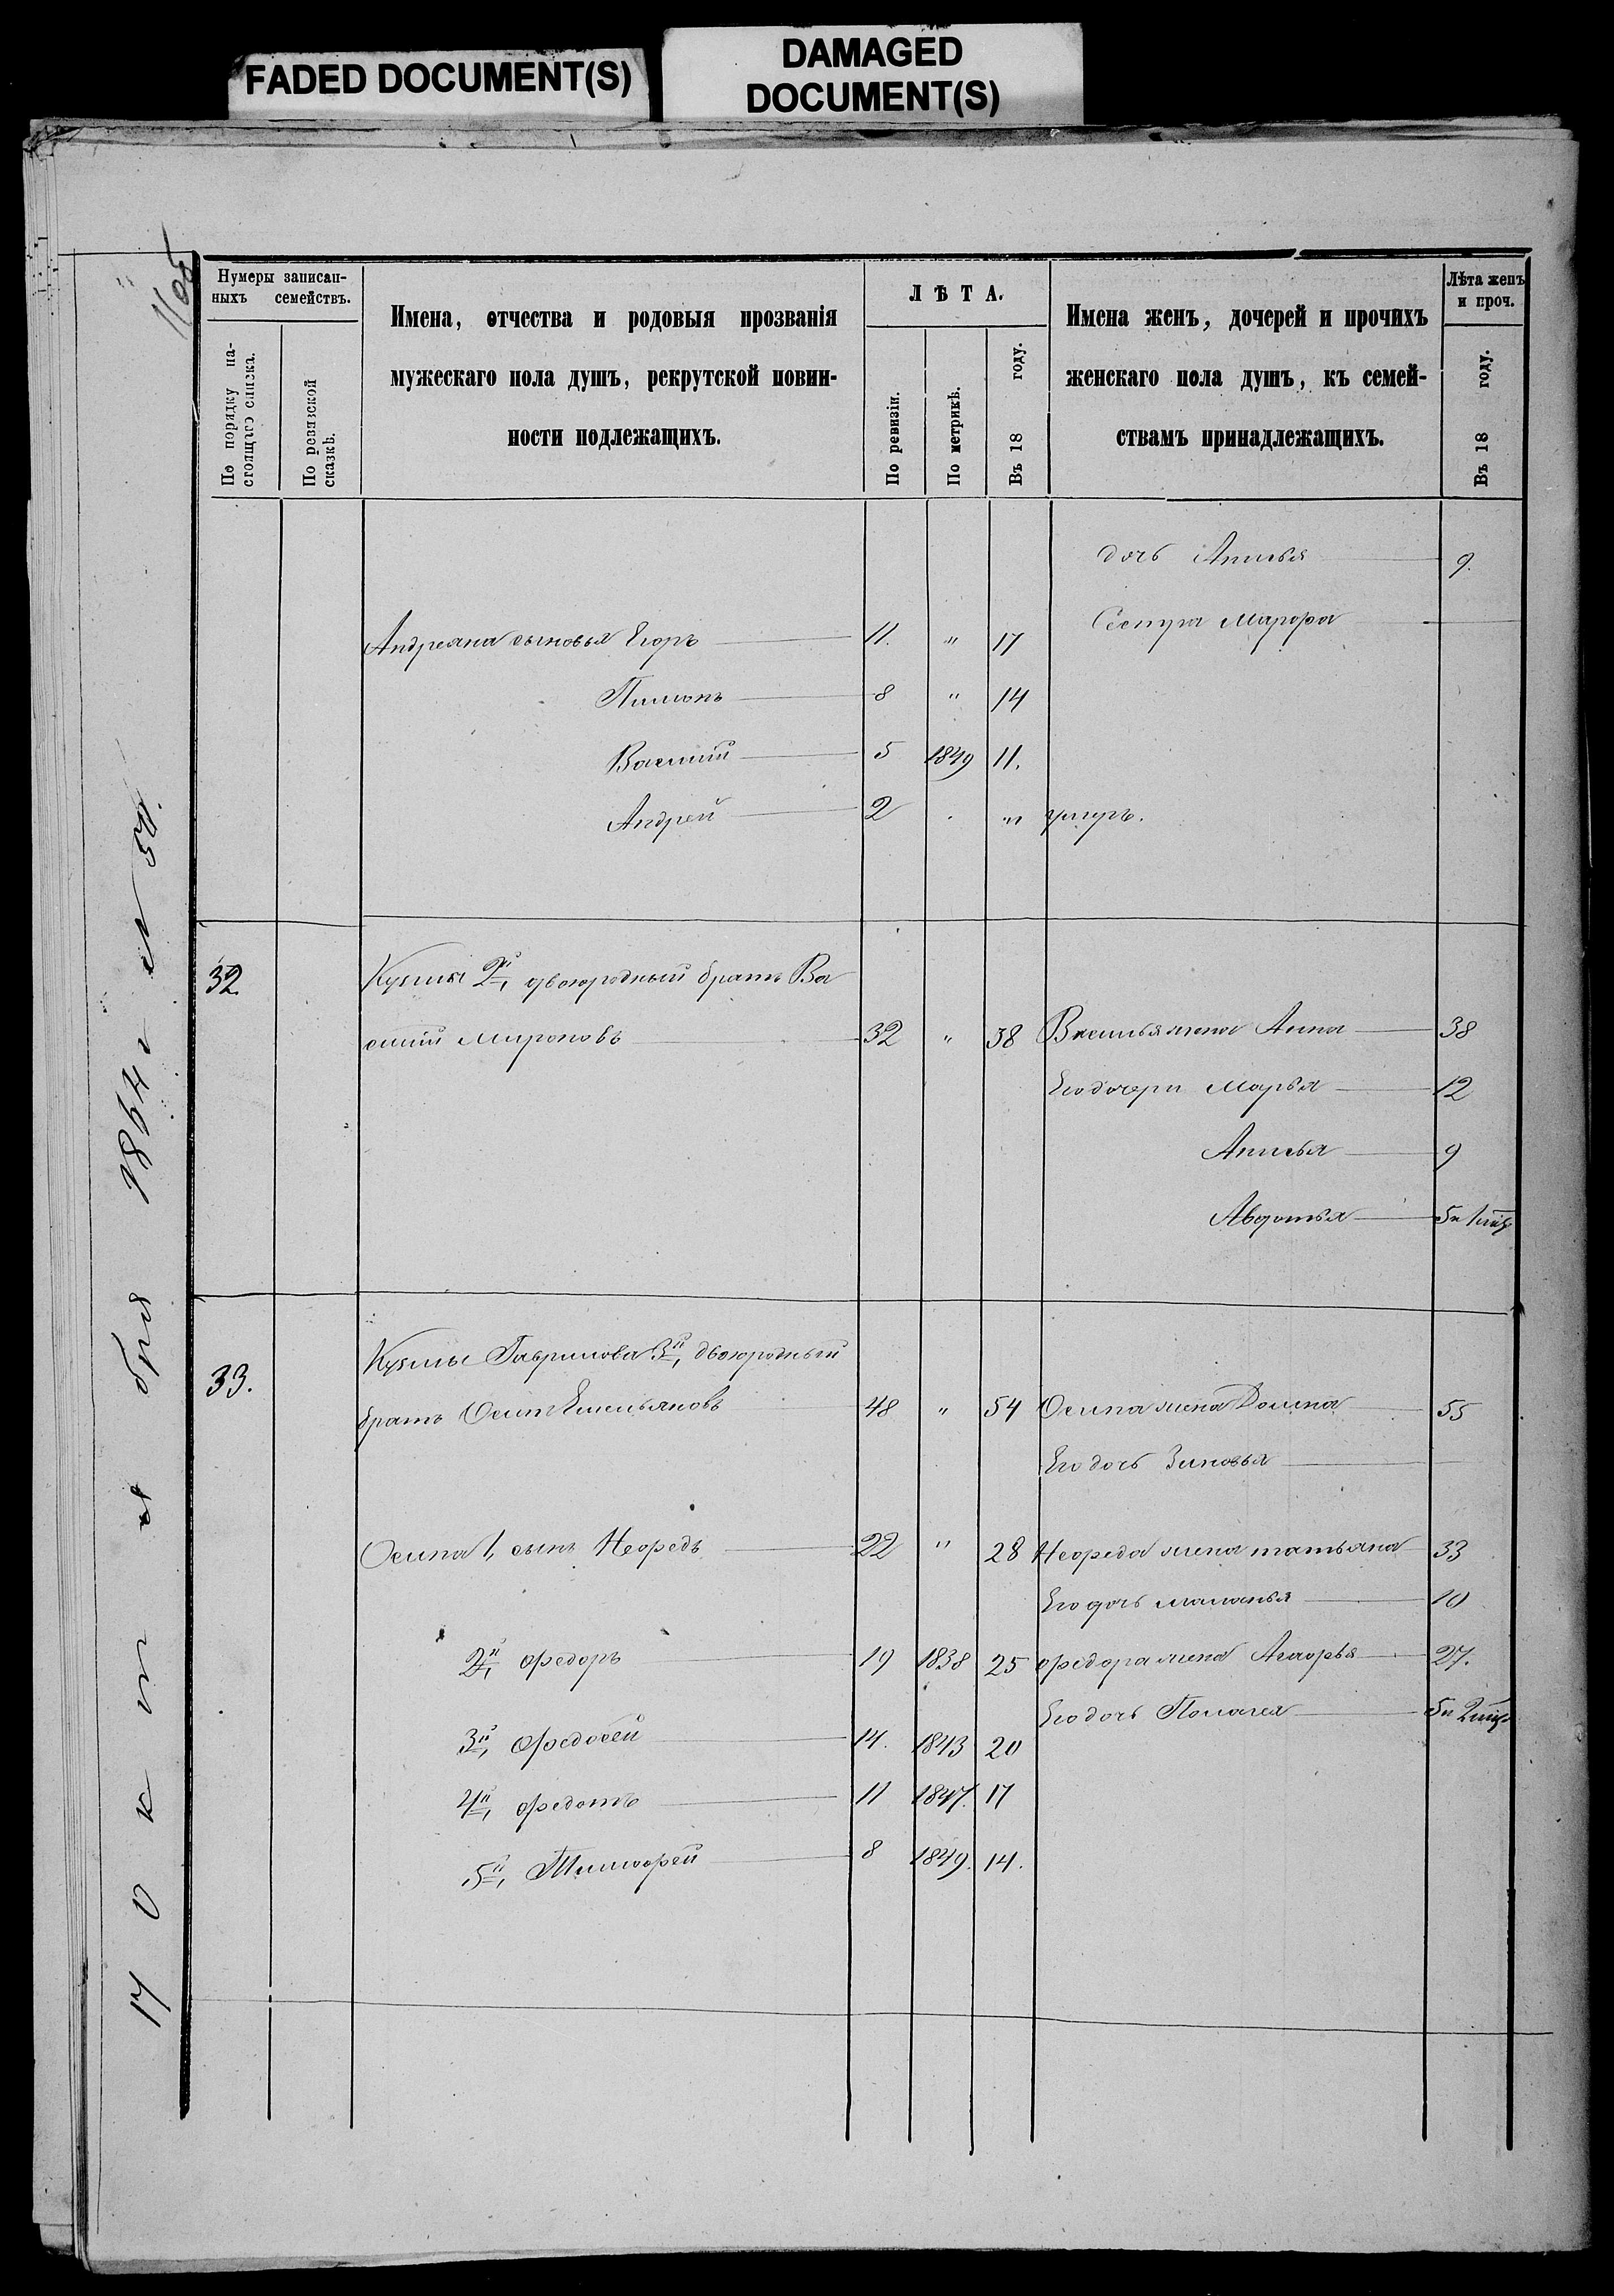 FADED DOCUMENT(S)
DAMAGED
DOCUMENT(S)
1105
Нумеры записан-
ныхъ семействъ.
По порядку на-
стоящаго списка.
По ревизской
сказкѣ.
Имена, отчества и родовыя прозванія
мужескаго пола душъ, рекрутской повин-
ности подлежащихъ.
ЛѢТА.
По ревизіи.
По метрикѣ.
Въ 18 году.
Имена женъ, дочерей и прочихъ
женскаго пола душъ, къ семей-
ствамъ принадлежащихъ.
Лѣта женъ
и проч.
Въ 18 году.
дочь Анисья 9.
Сестра Марфа
Андреяна сыновья Егоръ 11. " 17
Пименъ 8 " 14
Василій 5 1849 11.
Андрей 2 . " умеръ.
32 Кузмы 2й, двоюродный братъ Ва
силій Мироновъ 32 " 38 Василья жена Анна 38
Его дочери Марья 12
Анисья 9
Авдотья 5 и 1 мц
33. Кузмы Гаврилова 3й, двоюродный
братъ Осипъ Емельяновъ 48 " 54 Осипа жена Домна 55
Его дочь Зиновья
Осипа 1, сынъ Нефедъ 22 " 28 Нефеда жена татьяна 33
Его дочь маланья 10
2й, федоръ 19 1838 25 федора жена Агафья 27.
Его дочь Пелагея 5 и 2 мц
3й, Федосей 14. 1843 20
4й, федотъ 11 1847. 17
5й, Тимофей 8 1849. 14.
17 октября 1864 г